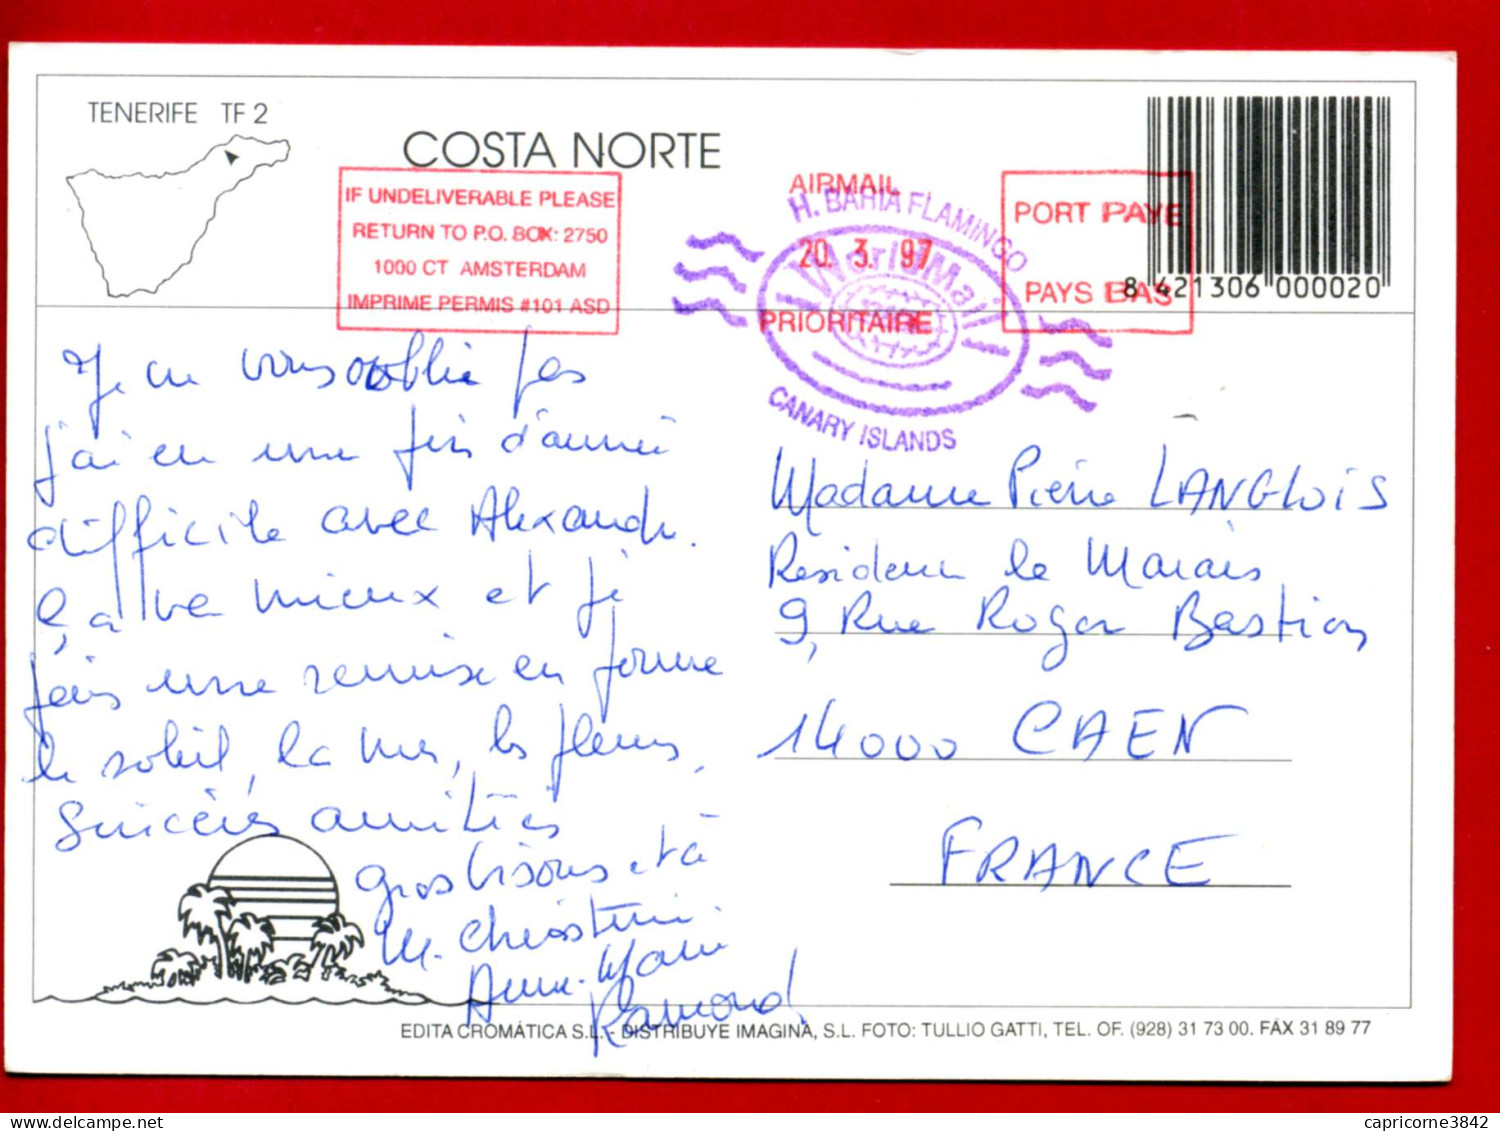 TENERIFE TF 2
COSTA NORTE
IF UNDELIVERABLE PLEASE
RETURN TO P.O. BOX: 2750
1000 CT AMSTERDAM
IMPRIME PERMIS #101 ASD
AIRMAIL
20. 3. 97
PRIORITAIRE
H. BAHIA FLAMINGO
World Mail
CANARY ISLANDS
PORT PAYE
PAYS BAS
8 421306 000020
Je ne vous oublie pas
j'ai eu une fin d'année
difficile avec Alexandre.
ça va mieux et je
fais une remise en forme
le soleil, la mer, les fleurs,
sincères amitiés
gros bisous et à
M. Christine.
Anne-Marie
Ramond
Madame Pierre LANGLOIS
Residence le Marais
9, Rue Roger Bastion
14000 CAEN
FRANCE
EDITA CROMÁTICA S.L. - DISTRIBUYE IMAGINA, S.L. FOTO: TULLIO GATTI, TEL. OF. (928) 31 73 00. FAX 31 89 77
capricorne3842